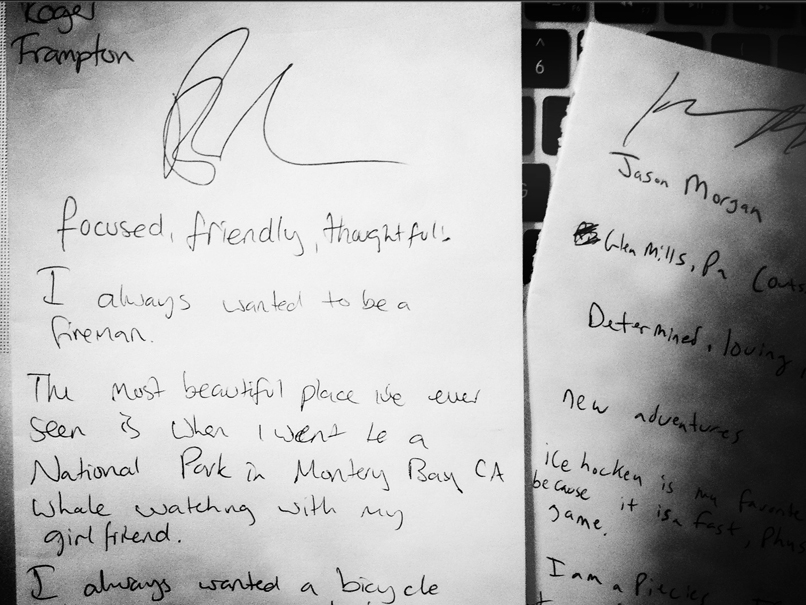 Roger
Frampton
focused, friendly, thoughtful.
I always wanted to be a
fireman.
The most beautiful place ive ever
seen is when I went to a
National Park in Montery Bay CA
whale watching with my
girlfriend.
I always wanted a bicycle
^
6
Jason Morgan
Glen Mills, Pa
Determined, loving,
new adventures
ice hockey is my favorite
because it is a fast, Phys
game.
I am a Piecies